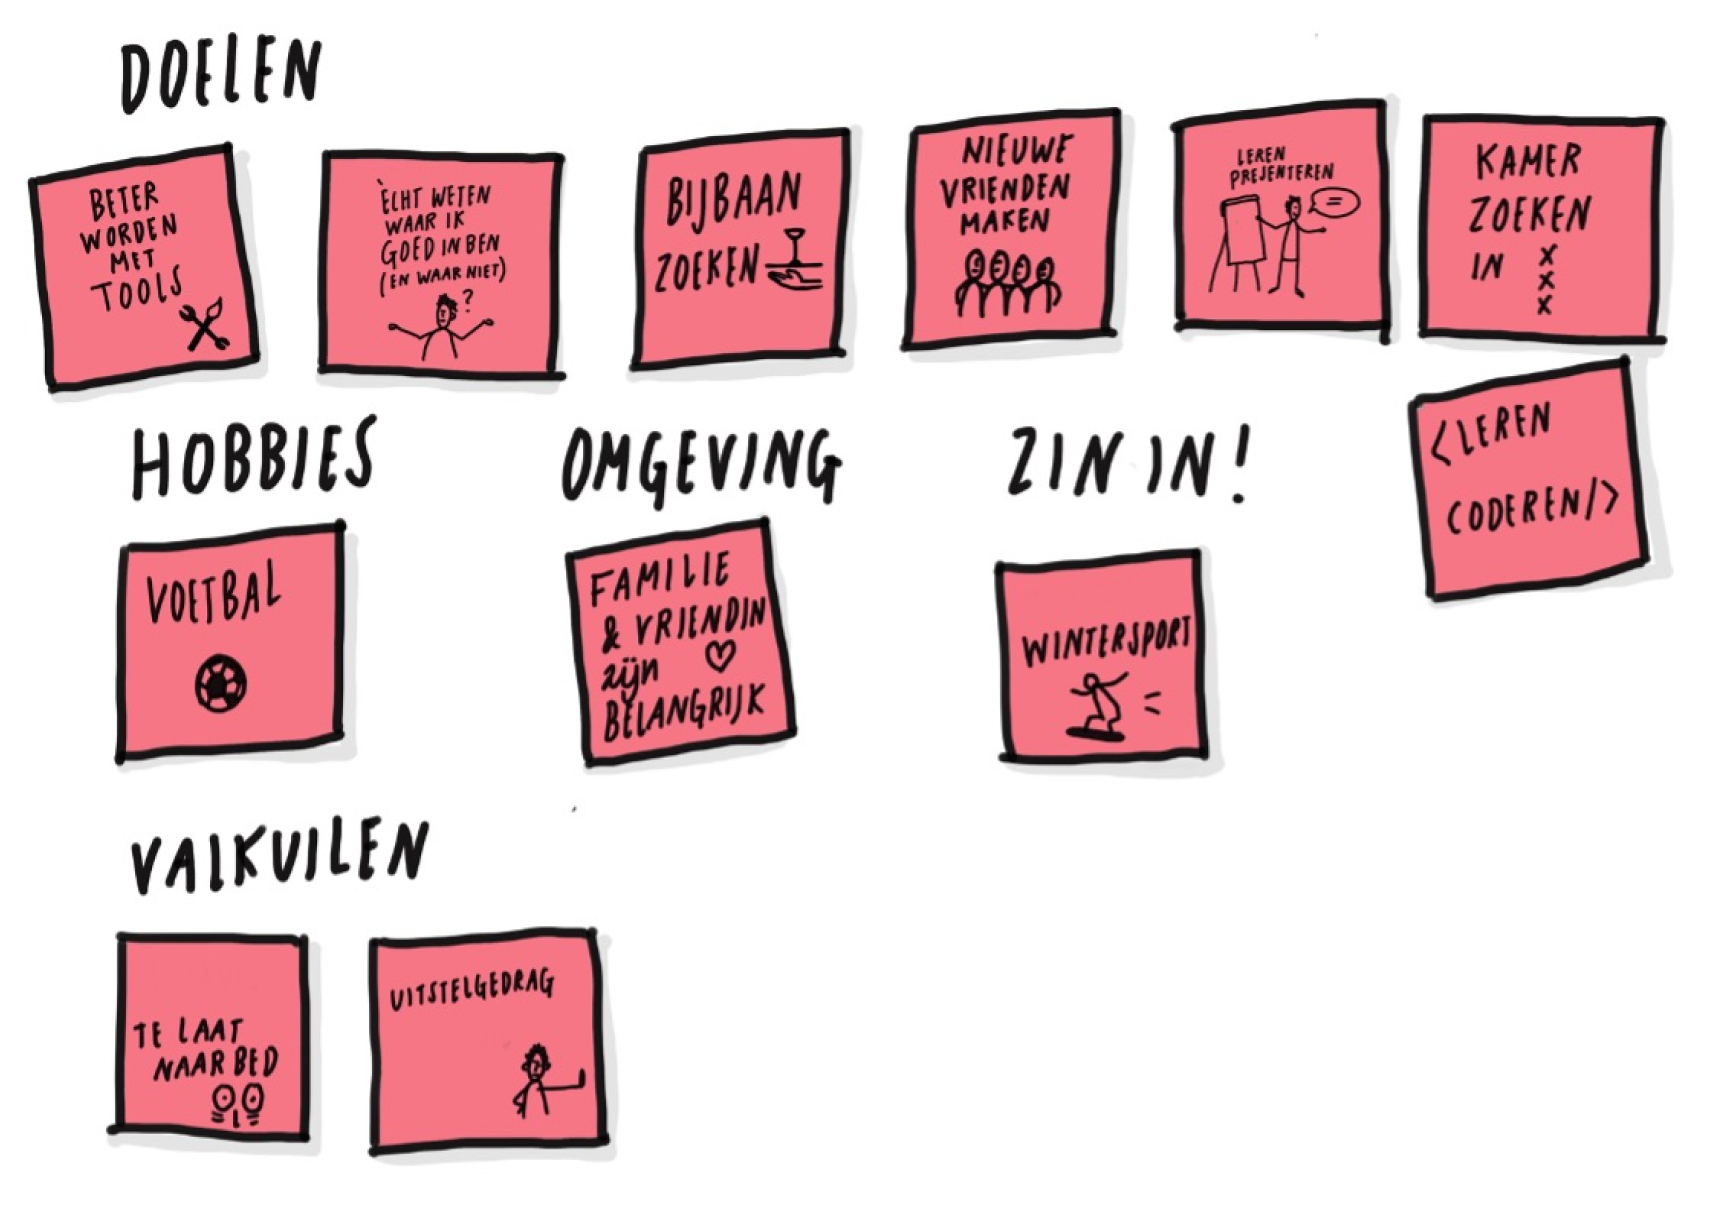 DOELEN
BETER
WORDEN
MET
TOOLS
ÈCHT WETEN
WAAR IK
GOED IN BEN
(EN WAAR NIET)
?
BIJBAAN
ZOEKEN
NIEUWE
VRIENDEN
MAKEN
LEREN
PRESENTEREN
KAMER
ZOEKEN
IN X
X
X
<LEREN
CODEREN/>
HOBBIES
VOETBAL
OMGEVING
FAMILIE
& VRIENDIN
zijn
BELANGRIJK
ZIN IN!
WINTERSPORT
VALKUILEN
TE LAAT
NAAR BED
UITSTELGEDRAG